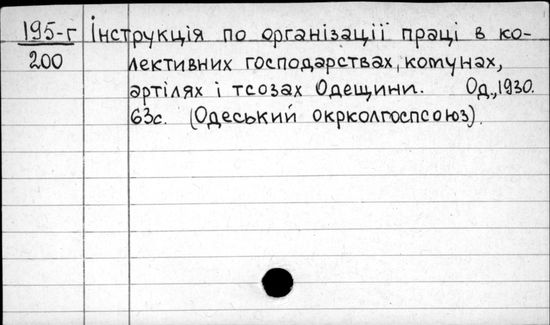 195-г Інструкція по організації праці в ко-
200 лективних господарствах, комунах,
артілях і тсозах Одещини. Од., 1930.
63с. (Одеський окрколгоспсоюз).